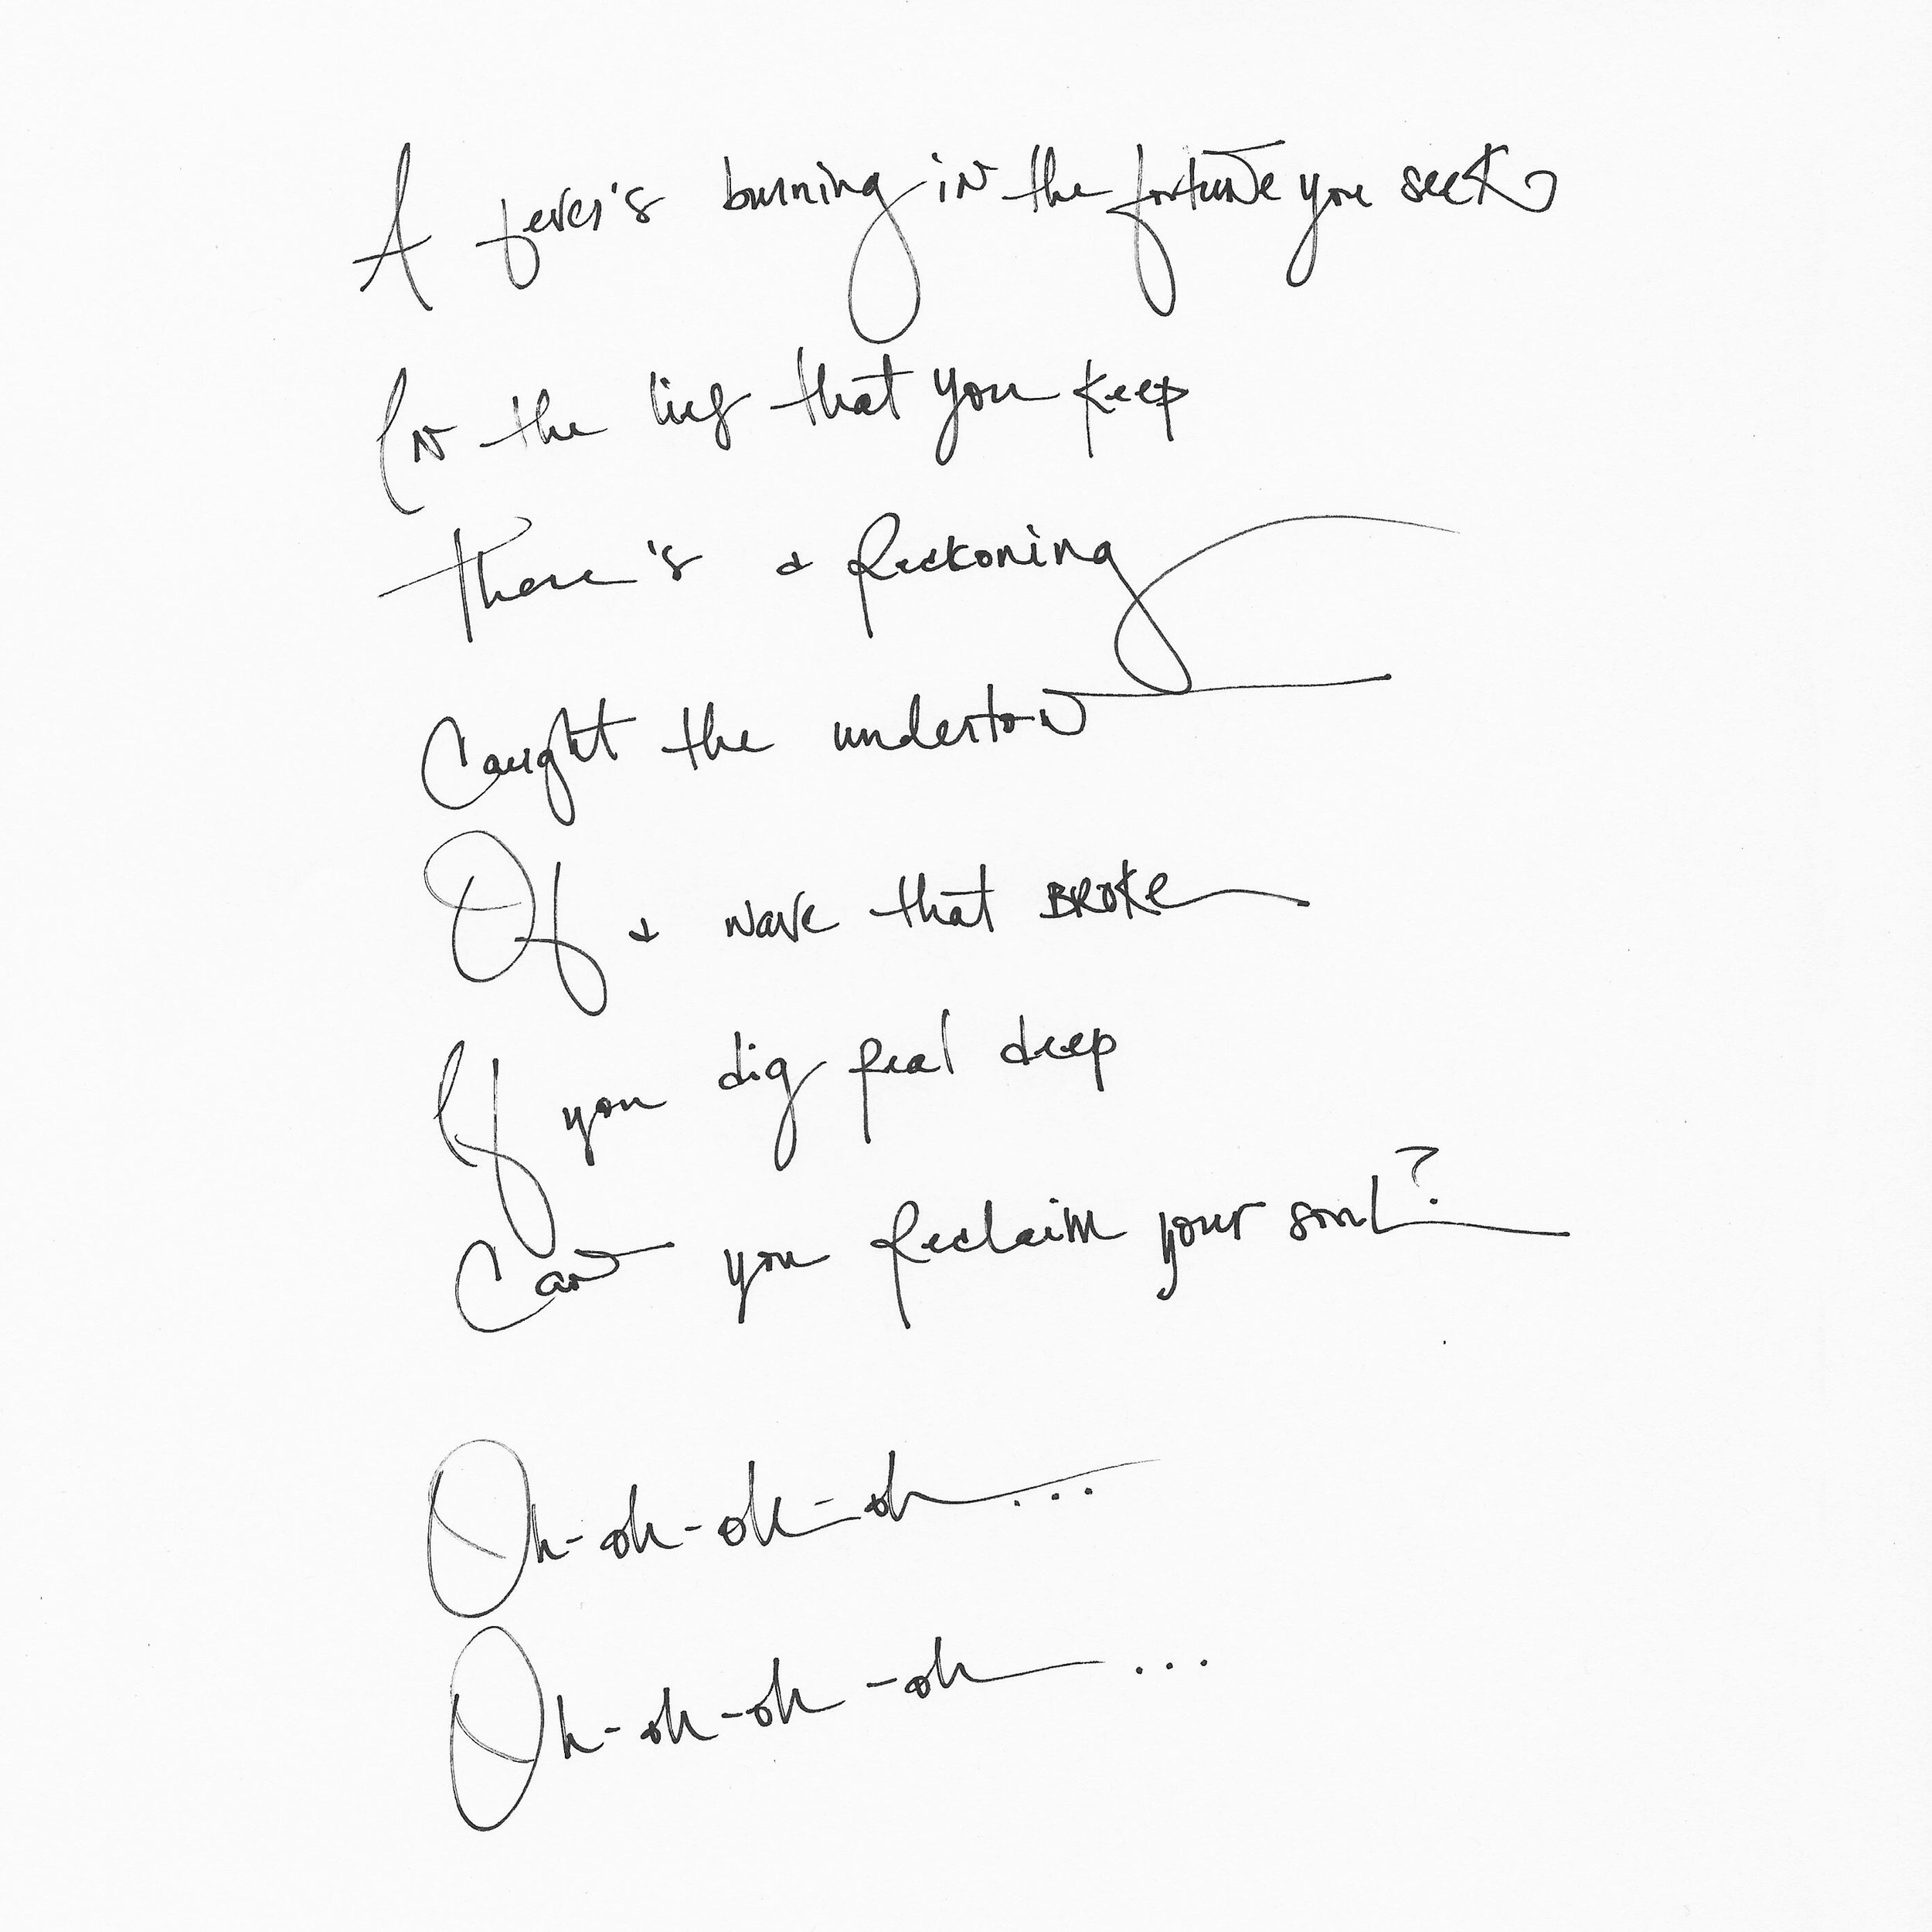 A fever's burning in the fortune you seek
In the lies that you keep
There's a Reckoning
Caught the undertow
Of a wave that BROKE
If you dig Real deep
Can you Reclaim your soul?
Oh-oh-oh-oh...
Oh-oh-oh-oh...